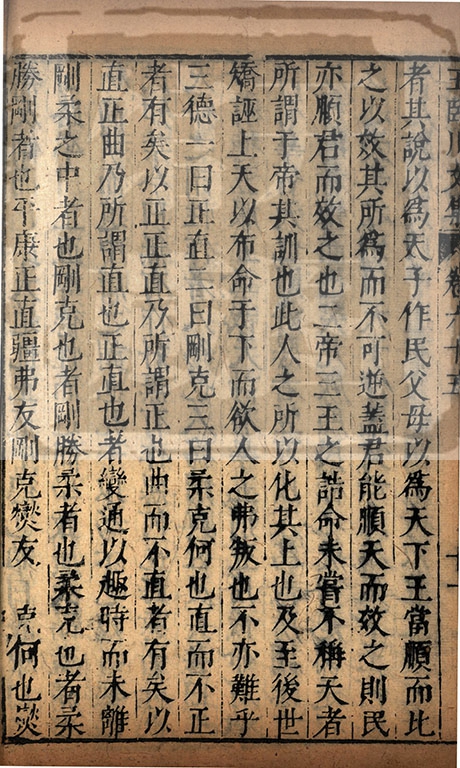 王臨川文集 卷六十五 十一
者其說以爲天子作民父母以爲天下王當順而比
之以效其所爲而不可逆蓋君能順天而效之則民
亦順君而效之也二帝三王之誥命未嘗不稱天者
所謂于帝其訓也此人之所以化其上也及至後世
矯誣上天以布命于下而欲人之弗叛也不亦難乎
三德一曰正直二曰剛克三曰柔克何也直而不正
者有矣以正正直乃所謂正也曲而不直者有矣以
直正曲乃所謂直也正直也者變通以趣時而未離
剛柔之中者也剛克也者剛勝柔者也柔克也者柔
勝剛者也平康正直疆弗友剛克燮友 克何也燮